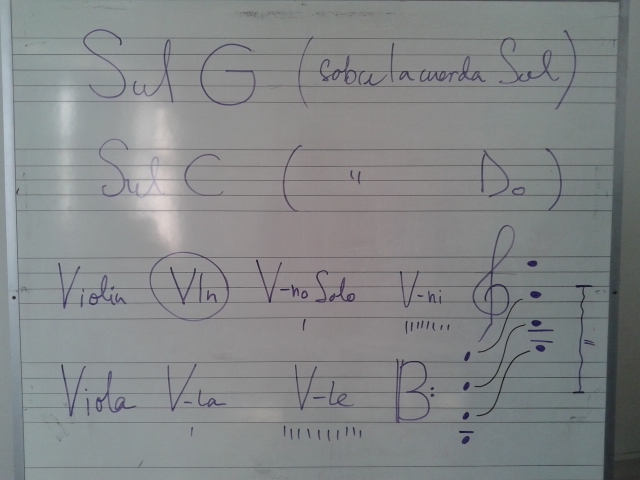 Sul G (sobre la cuerda Sol)
Sul C ( " Do )
Violin Vln V-no Solo V-ni
Viola V-la V-le